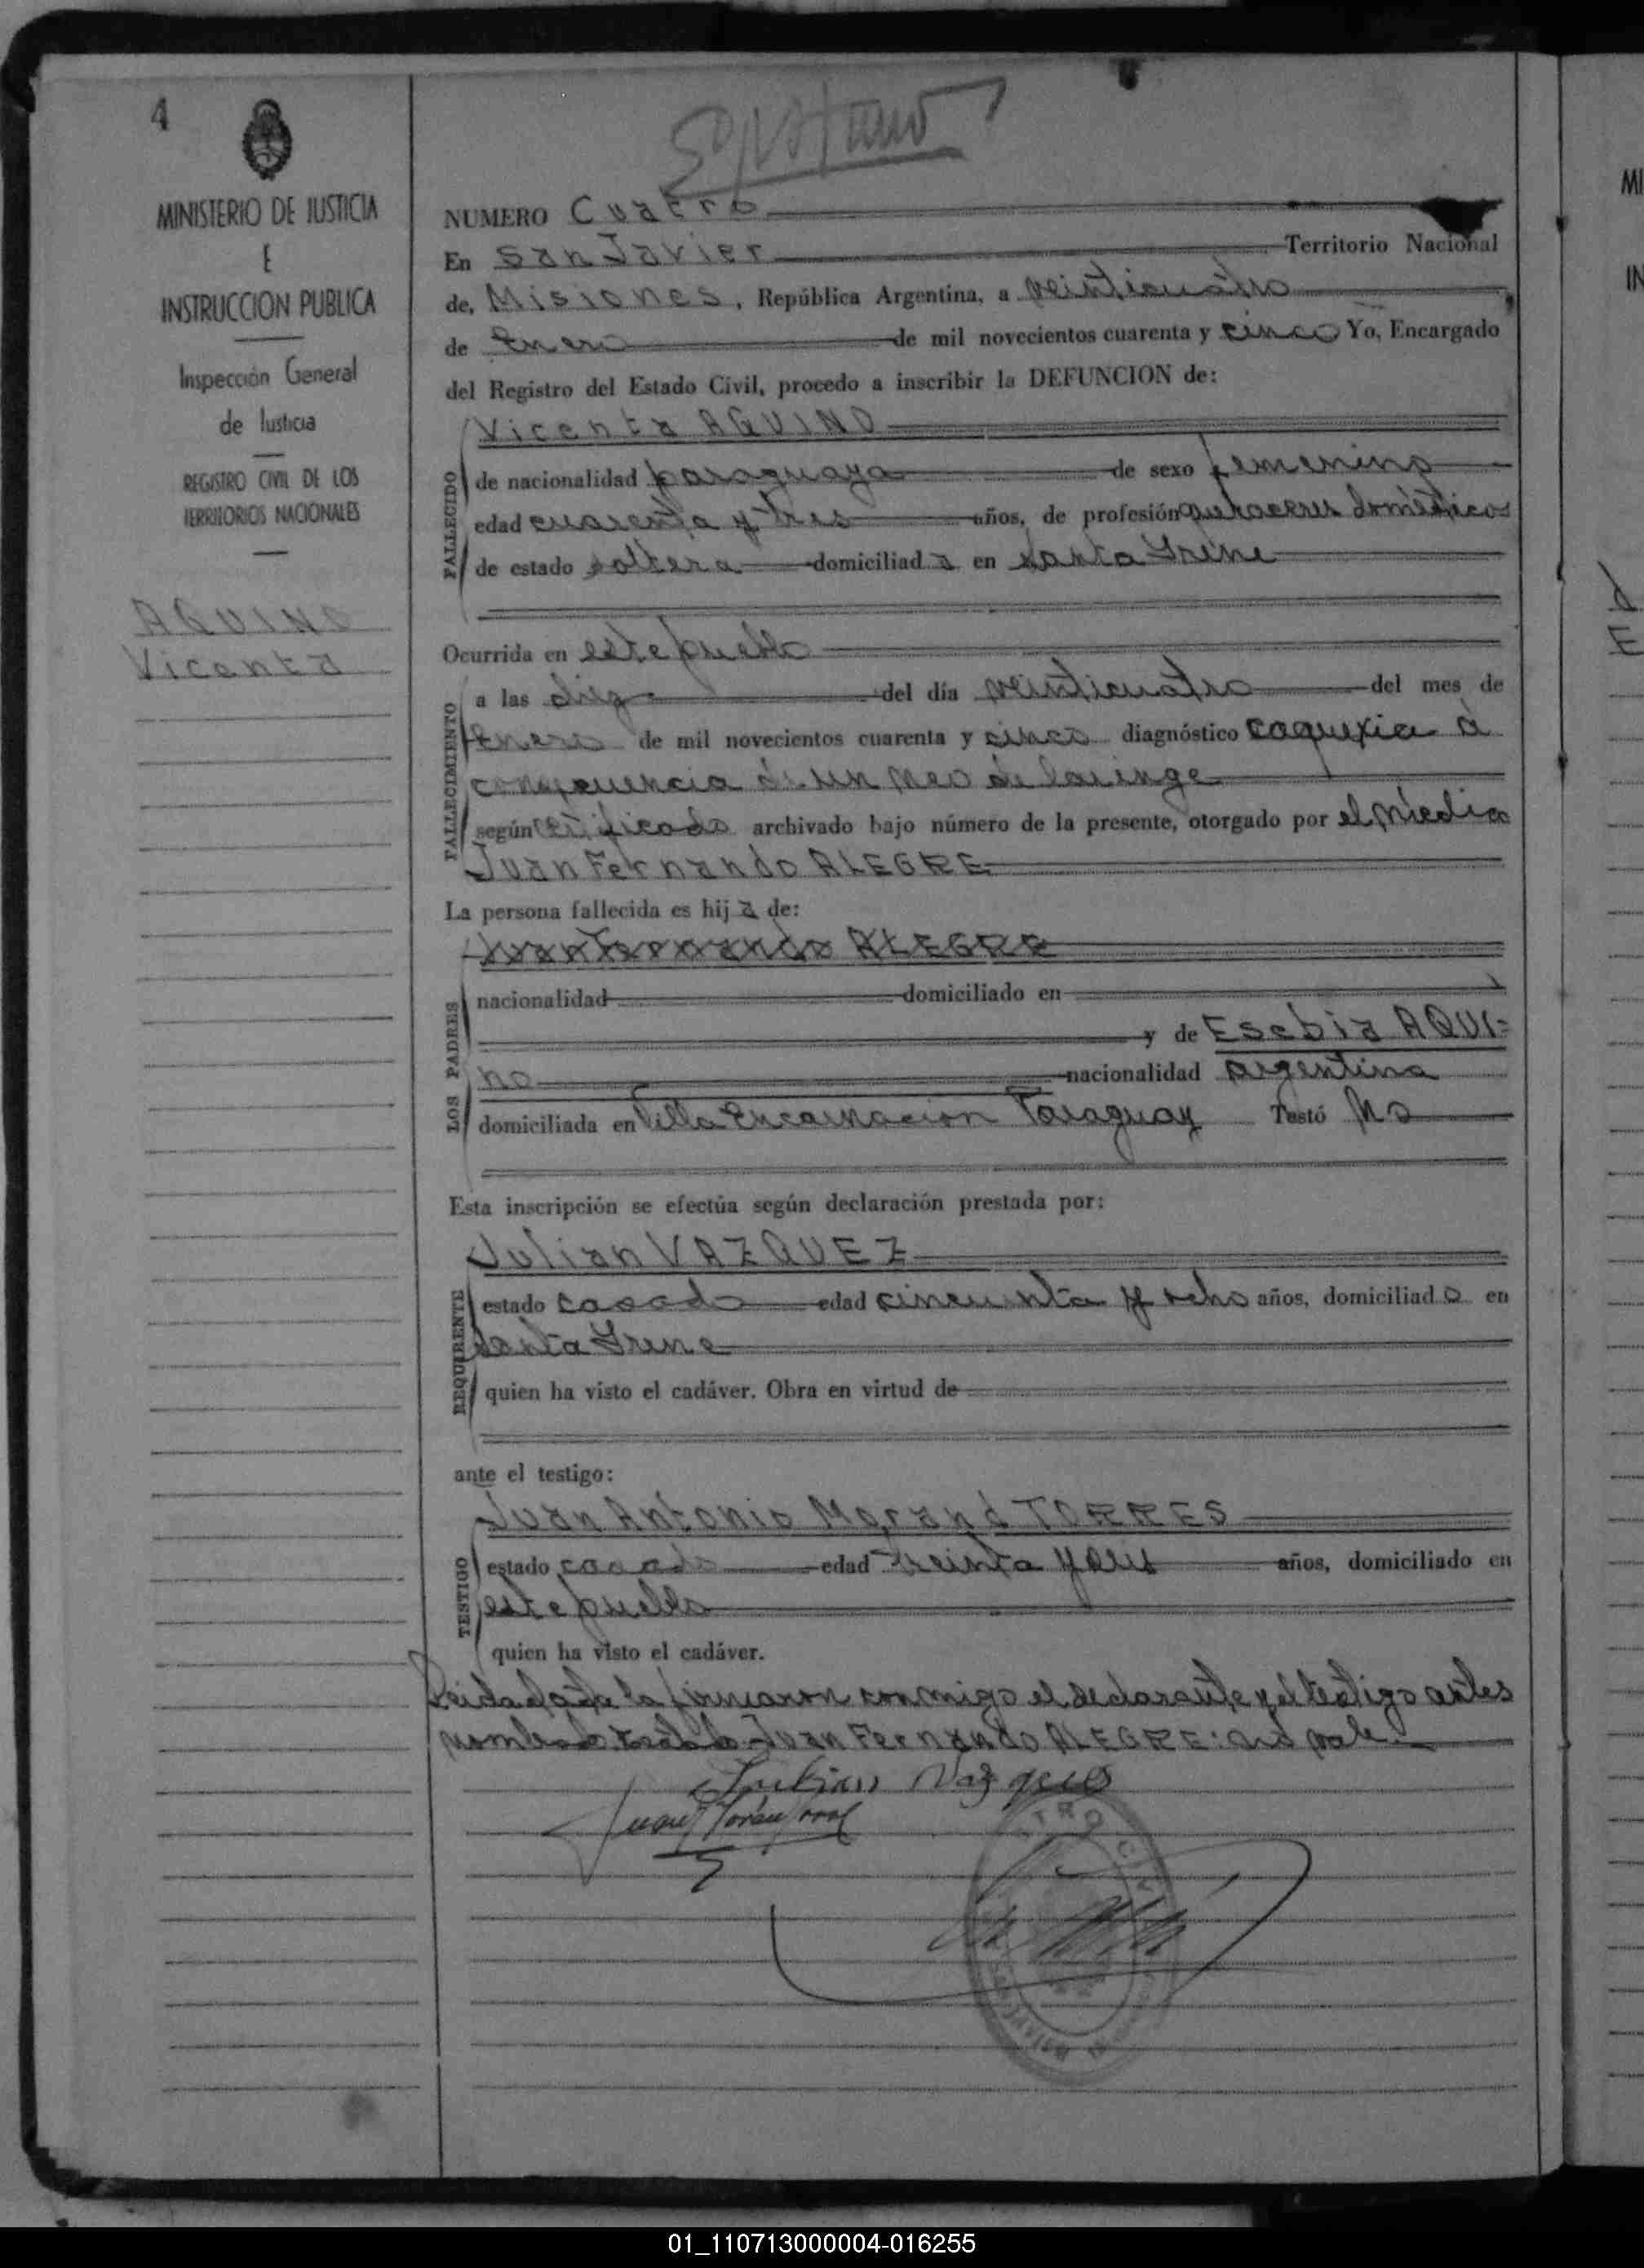 4
MINISTERIO DE JUSTICIA
E
INSTRUCCION PUBLICA
Inspección General
de Justicia
REGISTRO CIVIL DE LOS
TERRITORIOS NACIONALES
AQUINO
Vicenta
NUMERO Cuatro
En San Javier Territorio Nacional
de, Misiones, República Argentina, a veinticuatro
de Enero de mil novecientos cuarenta y cinco Yo, Encargado
del Registro del Estado Civil, procedo a inscribir la DEFUNCION de:
Vicenta AQUINO
FALLECIDO
de nacionalidad paraguaya de sexo femenino
edad cuarenta y tres años, de profesión quehaceres domésticos
de estado soltera domiciliada en Santa Irene
Ocurrida en este pueblo
FALLECIMIENTO
a las diez del día veinticuatro del mes de
Enero de mil novecientos cuarenta y cinco diagnóstico caquexia à
consecuencia de un neo de laringe
según certificado archivado bajo número de la presente, otorgado por el médico
Juan Fernando ALEGRE
La persona fallecida es hija de:
Juan Fernando ALEGRE
LOS PADRES
nacionalidad domiciliado en
y de Esebia AQUI=
no nacionalidad argentina
domiciliada en Villa Encarnacion Paraguay Testó No
Esta inscripción se efectúa según declaración prestada por:
Julian VAZQUEZ
REQUIRENTE
estado casado edad cincuenta y ocho años, domiciliado en
Santa Irene
quien ha visto el cadáver. Obra en virtud de
ante el testigo:
Juan Antonio Moran TORRES
TESTIGO
estado casado edad treinta y seis años, domiciliado en
este pueblo
quien ha visto el cadáver.
Leida la firmaron conmigo el declarante y el testigo antes
nombrado Juan Fernando ALEGRE: no vale
Julian Vazques
01_110713000004-016255